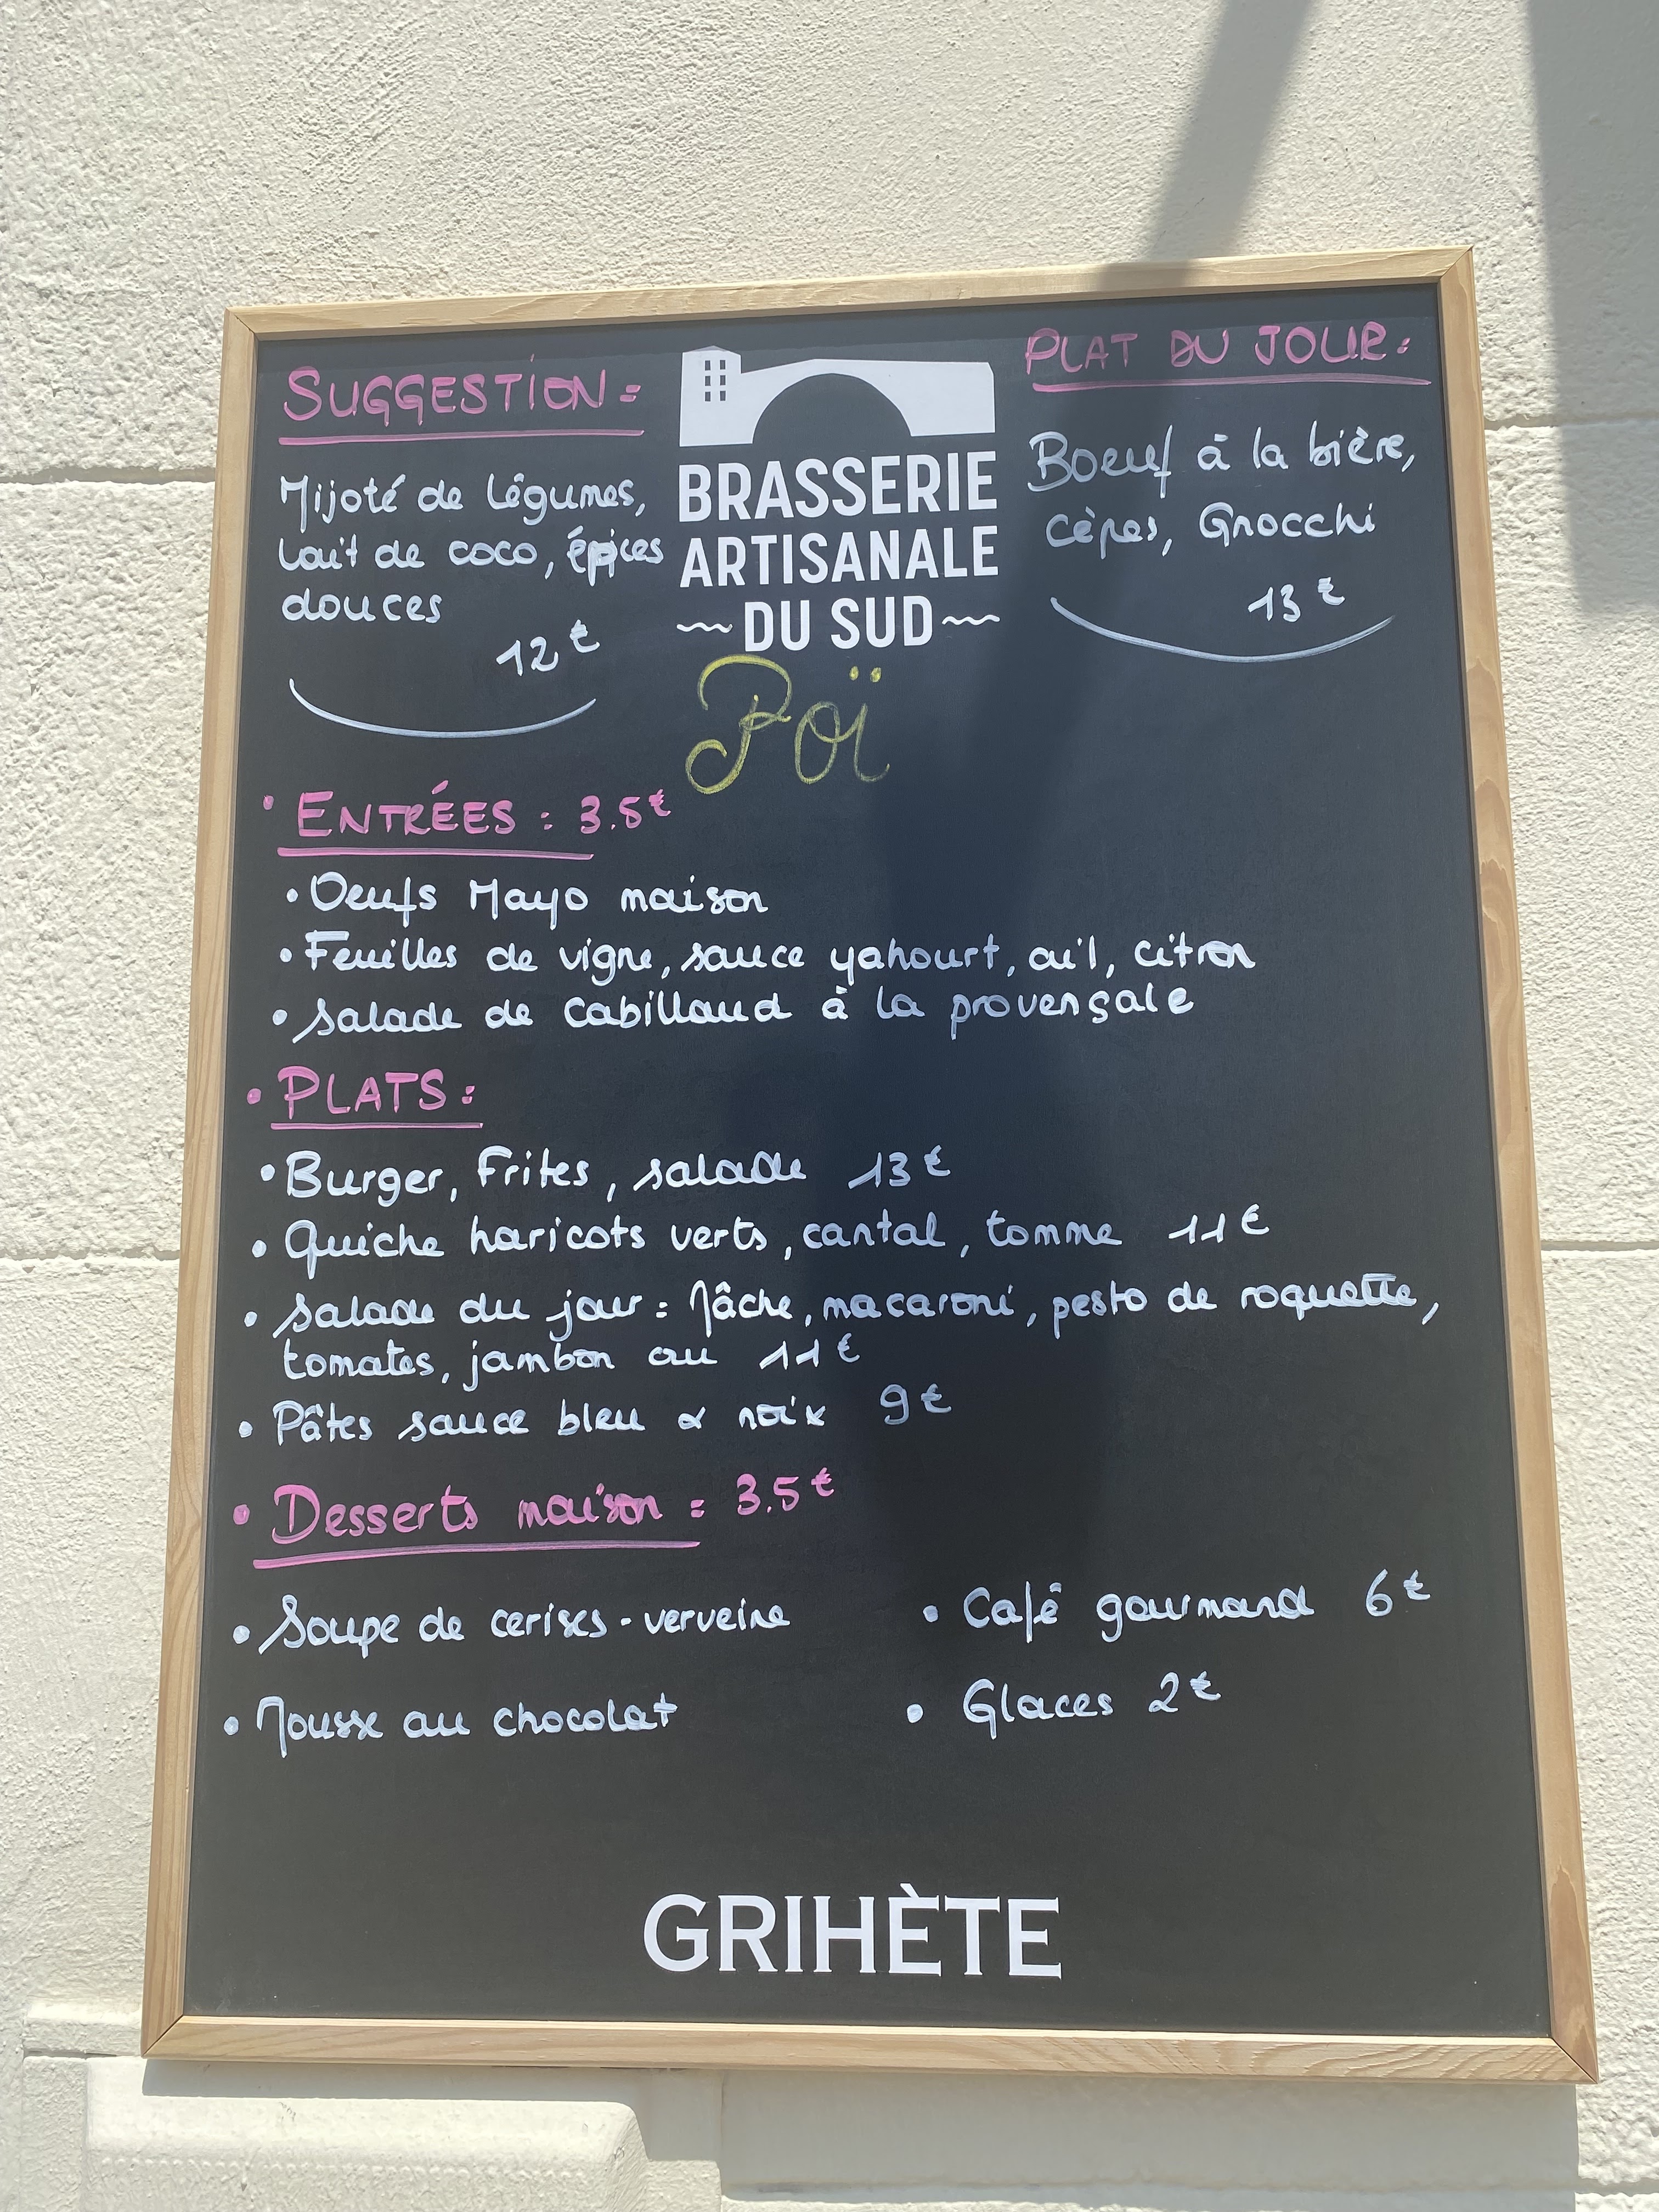 SUGGESTION :
Mijoté de légumes,
lait de coco, épices
douces
12 €
BRASSERIE
ARTISANALE
DU SUD
Poï
PLAT DU JOUR :
Boeuf à la bière,
cèpes, Gnocchi
13 €
• ENTRÉES : 3.5€
• Oeufs Mayo maison
• Feuilles de vigne, sauce yahourt, ail, citron
• Salade de cabillaud à la provençale
• PLATS :
• Burger, Frites, salade 13 €
• Quiche haricots verts, cantal, tomme 11 €
• Salade du jour : Mâche, macaroni, pesto de roquette,
tomates, jambon cru 11 €
• Pâtes sauce bleu & noix 9 €
• Desserts maison : 3.5 €
• Soupe de cerises - verveine
• Mousse au chocolat
• Café gourmand 6 €
• Glaces 2 €
GRIHÈTE